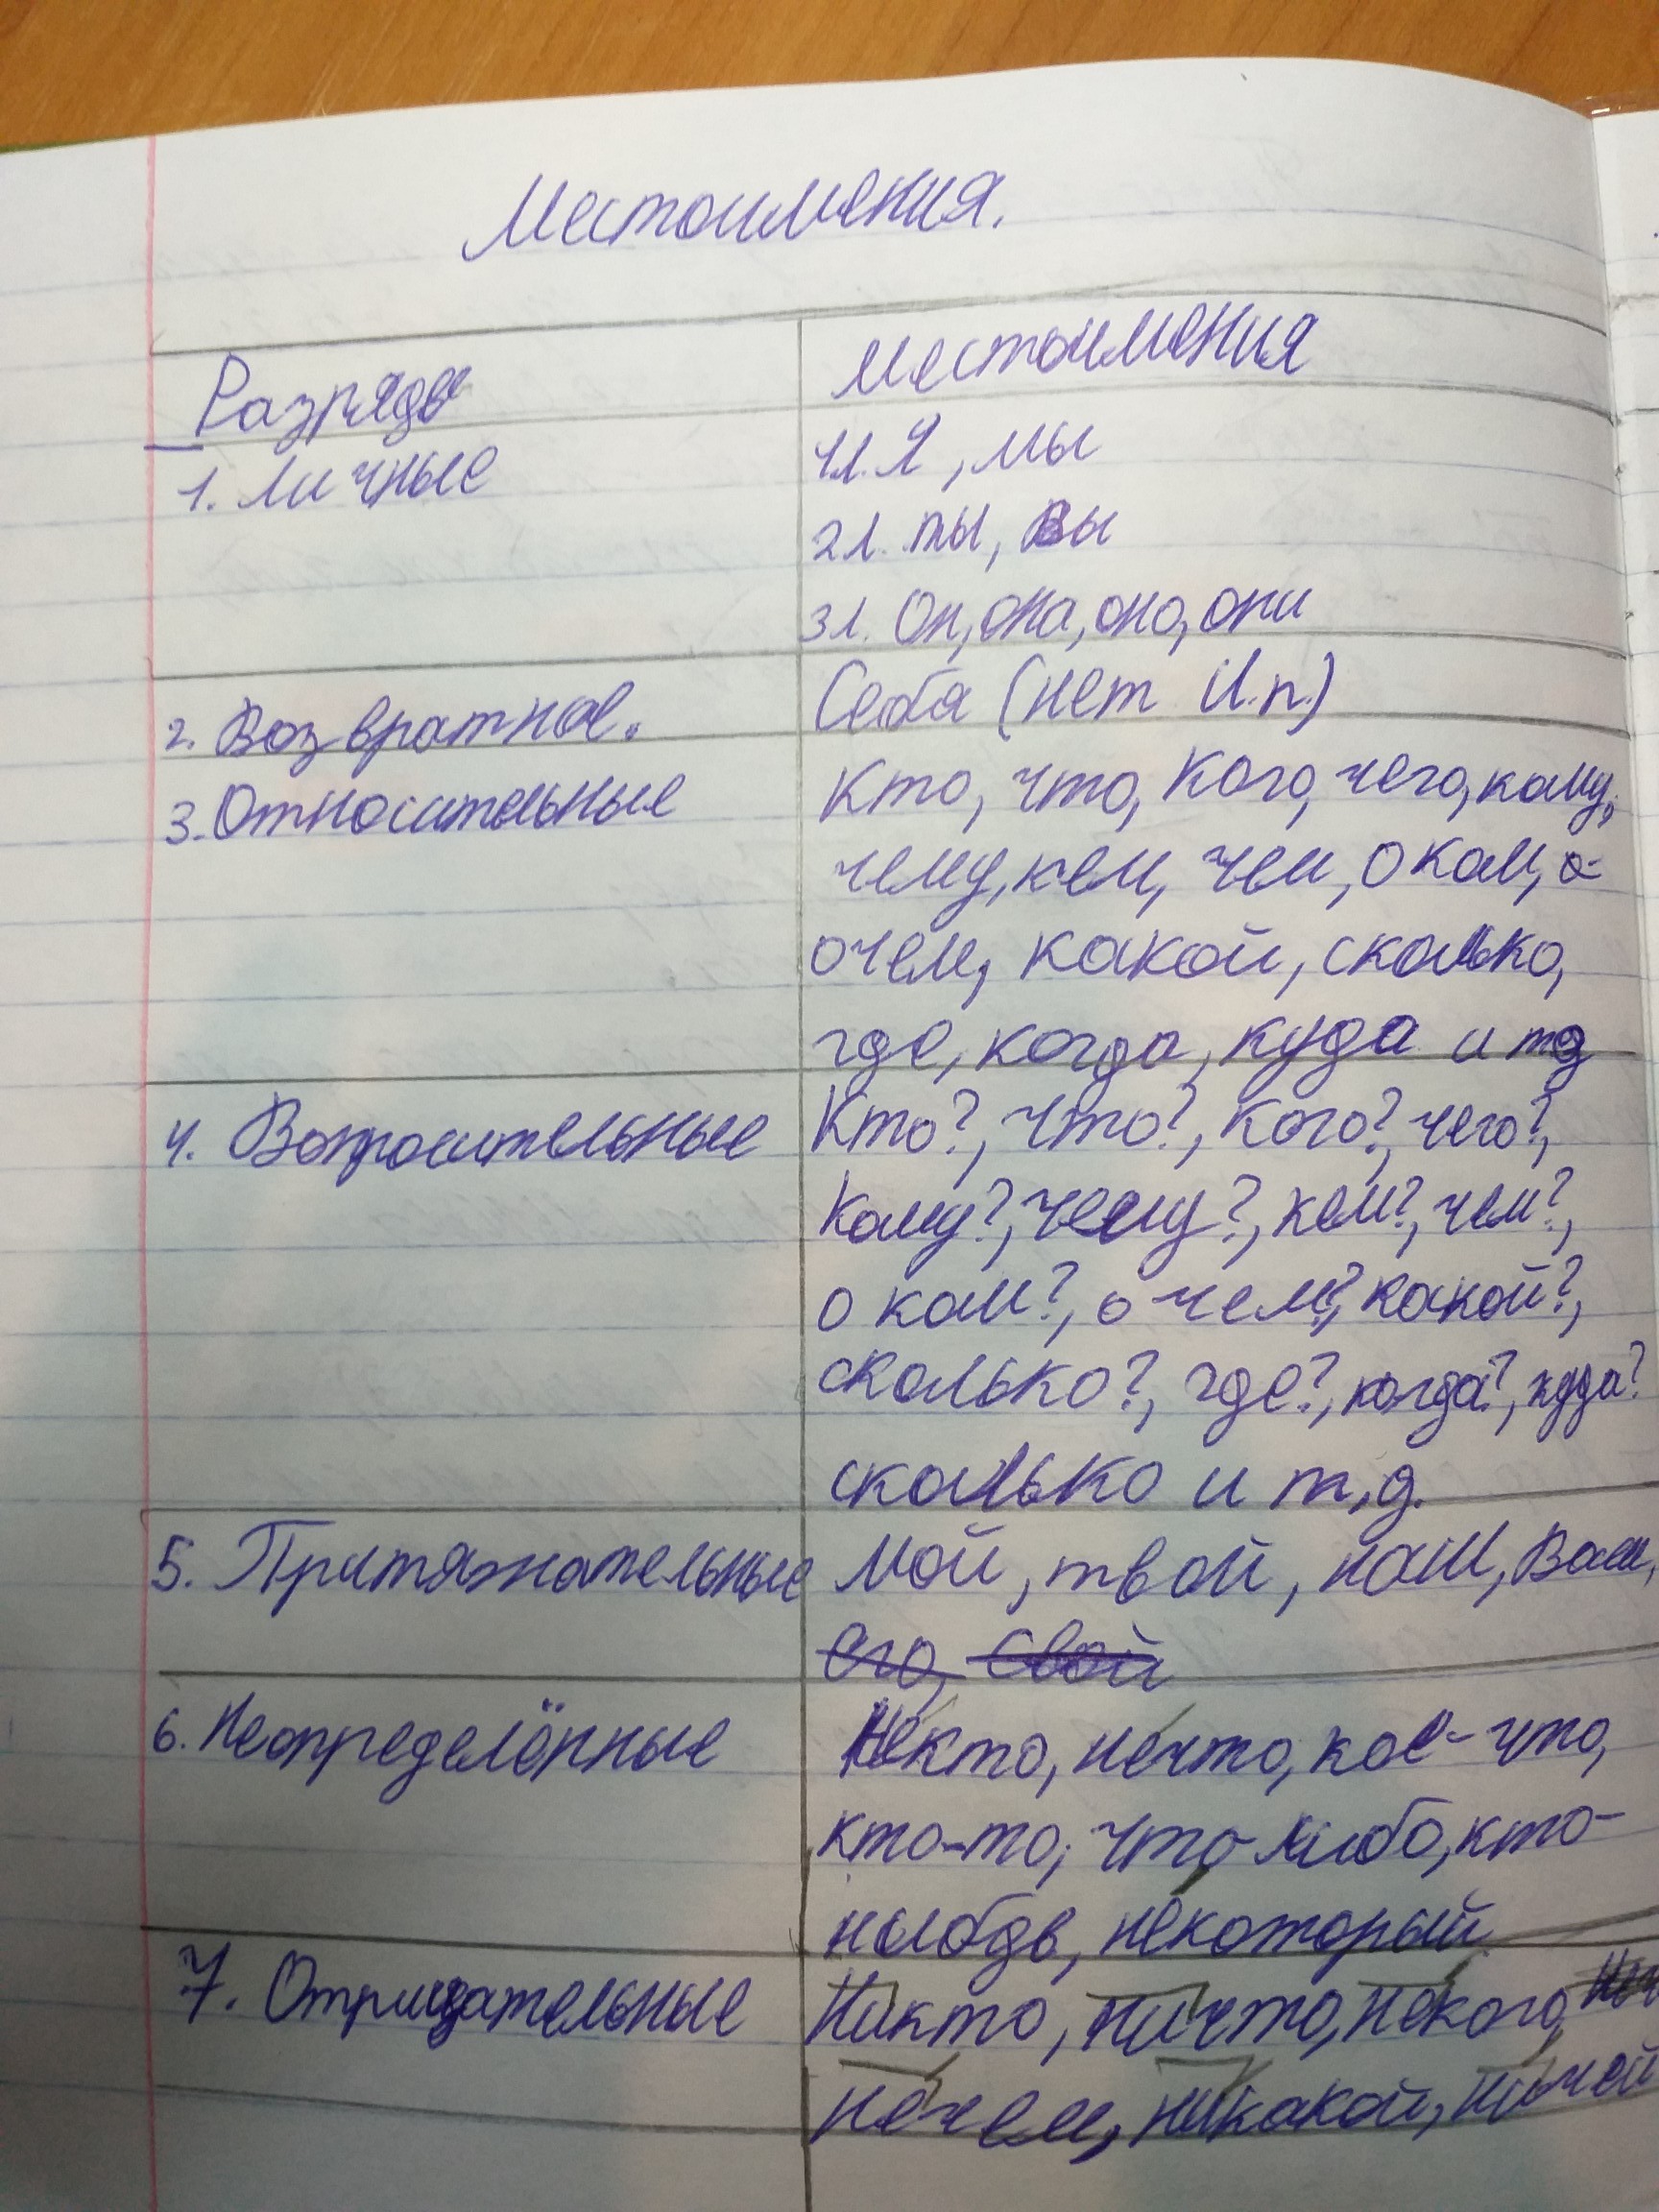 Местоимения.
Разряды
местоимения
1. Личные
1л. Я, мы
2л. ты, вы
3л. Он, она, оно, они
2. Возвратное.
Себя (нет И.п.)
3. Относительные
Кто, что, кого, чего, кому,
чему, кем, чем, о ком, о
о чем, какой, сколько,
где, когда, куда и тд
4. Вопросительные
Кто?, что?, кого?, чего?,
кому?, чему?, кем?, чем?,
о ком?, о чем?, какой?,
сколько?, где?, когда?, куда?
сколько и т,д.
5. Притяжательные
Мой, твой, наш, Ваш,
его, свой
6. Неопределённые
Некто, нечто, кое-что,
кто-то, что-либо, кто-
нибудь, некоторый
7. Отрицательные
Никто, ничто, некого,
нечем, никакой, ничей